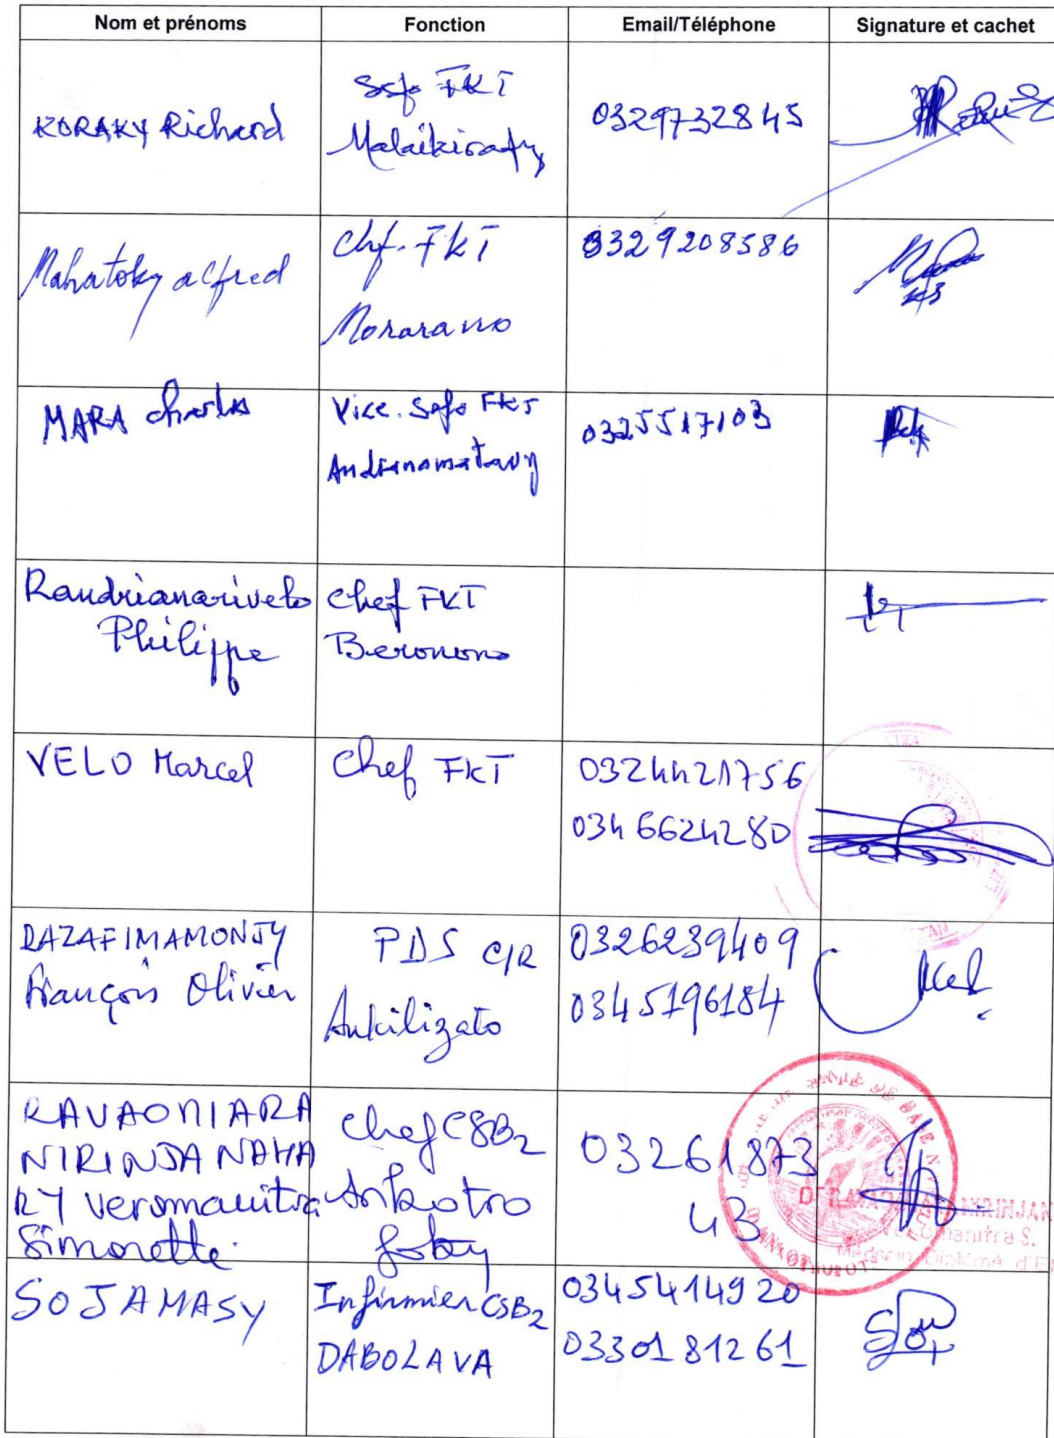 Nom et prénoms Fonction Email/Téléphone Signature et cachet
KORAKY Richard
FKT
Malaikiraty
0329732845
Mahatoky alfred
Chf. FKT
Morarano
0329208586
MARA Charles
Vice. Sefo FKT
0325517103
Randrianarivelo
Philippe
Chef FKT
Beronono
VELO Marcel
Chef FKT
0324421756
0346624280
RAZAFIMAMONJY
François Olivier
PDS C/R
Ankilizato
0326239409
0345196184
RAVAONIARA
NIRINJANAHA
RY Veromanitra
Simonette.
Chef CSB2
03261873
43
Médecin Diplômé d'E
SOJAMASY
Infirmier CSB2
DABOLAVA
0345414920
0330181261